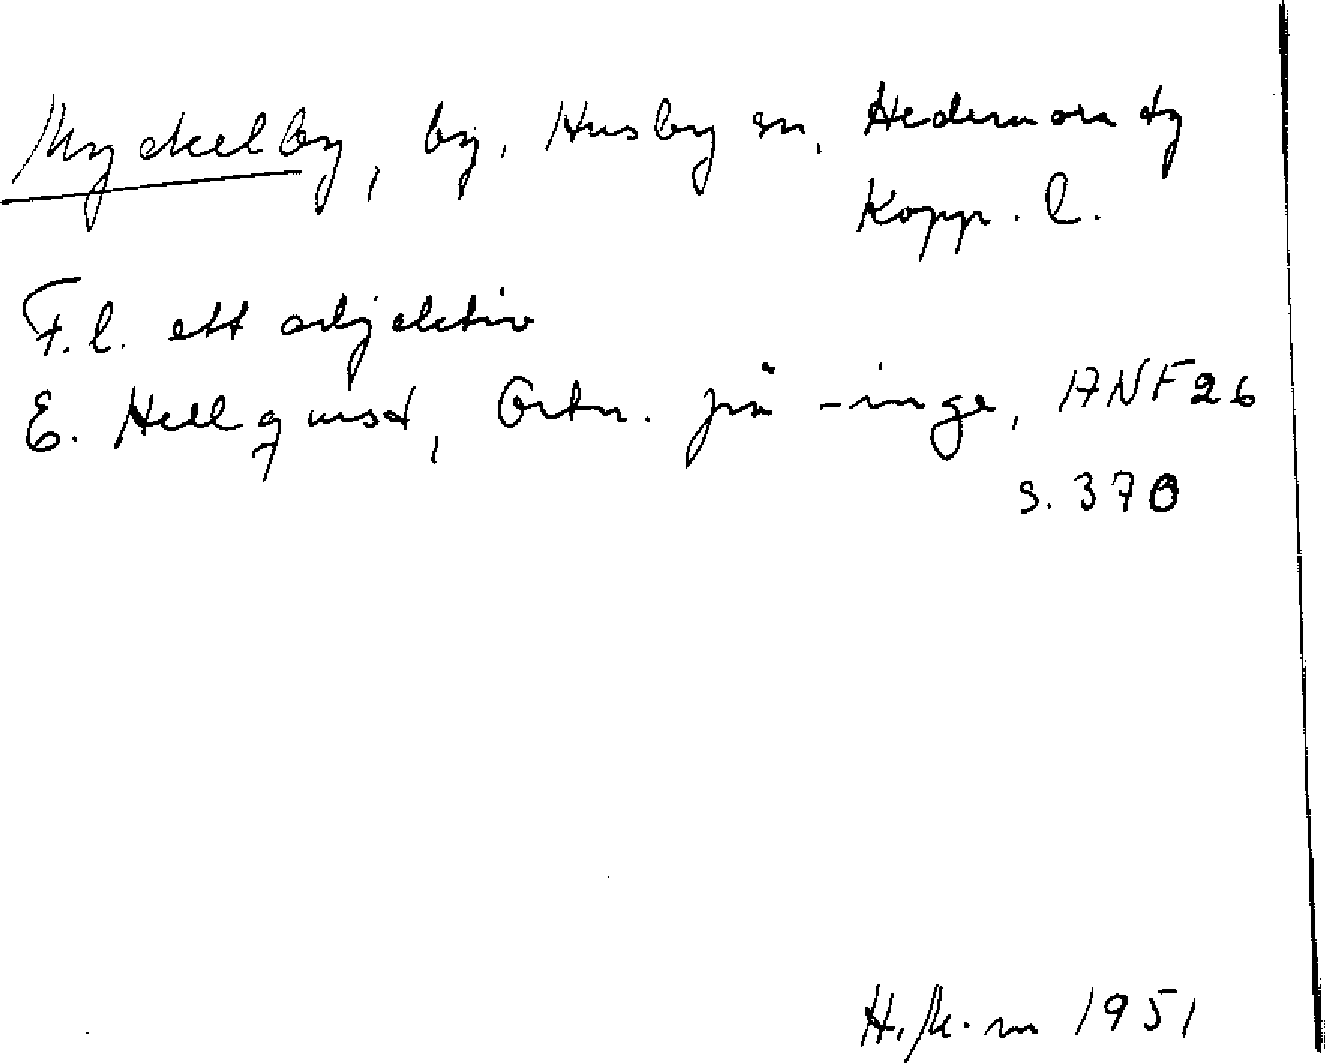 Myckelby, by, Husby sn, Hedemora tg
Kopp. l.
F. l. ett adjektiv
E. Hellquist, Ortn. på -inge, ANF 26
s. 370
1951